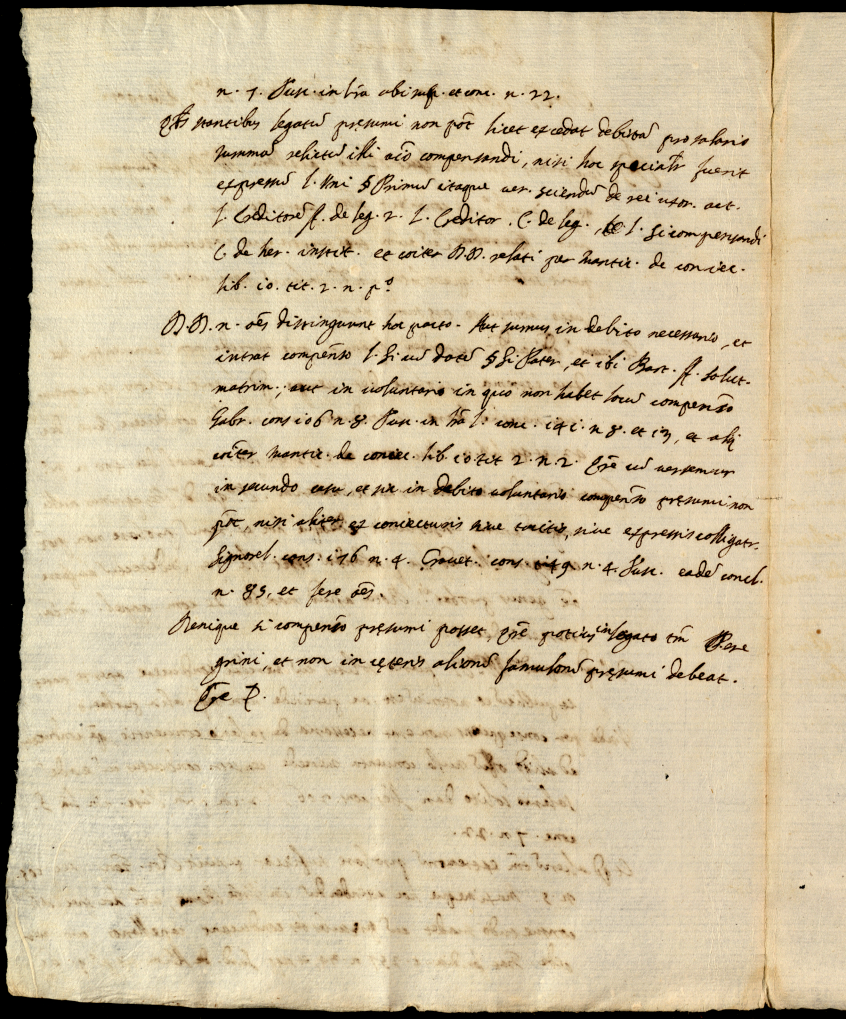 n. 7. Fusc. in l'ra ubi sup. et conc. n. 22.
Q'bus stantibus legatu' presumi non po't licet excedat debita' pro salario
summa' relictu' illi a'io compensandi, nisi hoc specialr' fuerit
expressu' l. Uni § Primu' itaque ver. sciendu' de rei uxor. act.
l. Creditore' ff. de leg. 2. l. Creditor. C. de leg. l. Si compensandi
C. de her. instit. et co'iter DD. relati per Mantic. de coniec.
lib. 10. tit. 2. n. p.o
DD. n. o'es distinguunt hoc pacto. Aut sumus in debito necessario, et
intrat compens'o l. Si cu' dote' § Si Pater, et ibi Bart. ff. solut.
matrim., aut in voluntario in quo non habet locu' compens'o
Gabr. cons. 106 n. 8. Fusc. in l'ra l. conc. 141. n. 8. et 13, et alij
co'iter Mantic. de coniec. lib. 10 tit 2. n. 2. Q're cu' versemur
in secundo casu, et sic in debito voluntario compens'o presumi non
po't, nisi aliter ex coniecturis sive tacitis, sive expressis colligatr.
Signorol. cons. 176 n. 4. Cravet. cons. 149 n. 4. Fusc. eade' concl.
n. 85, et fere o'es.
Denique si compens'o presumi posset, q're potius in legato tm' Pere
grini, et non in ceteris alioru' famuloru' presumi debeat.
Q're P.